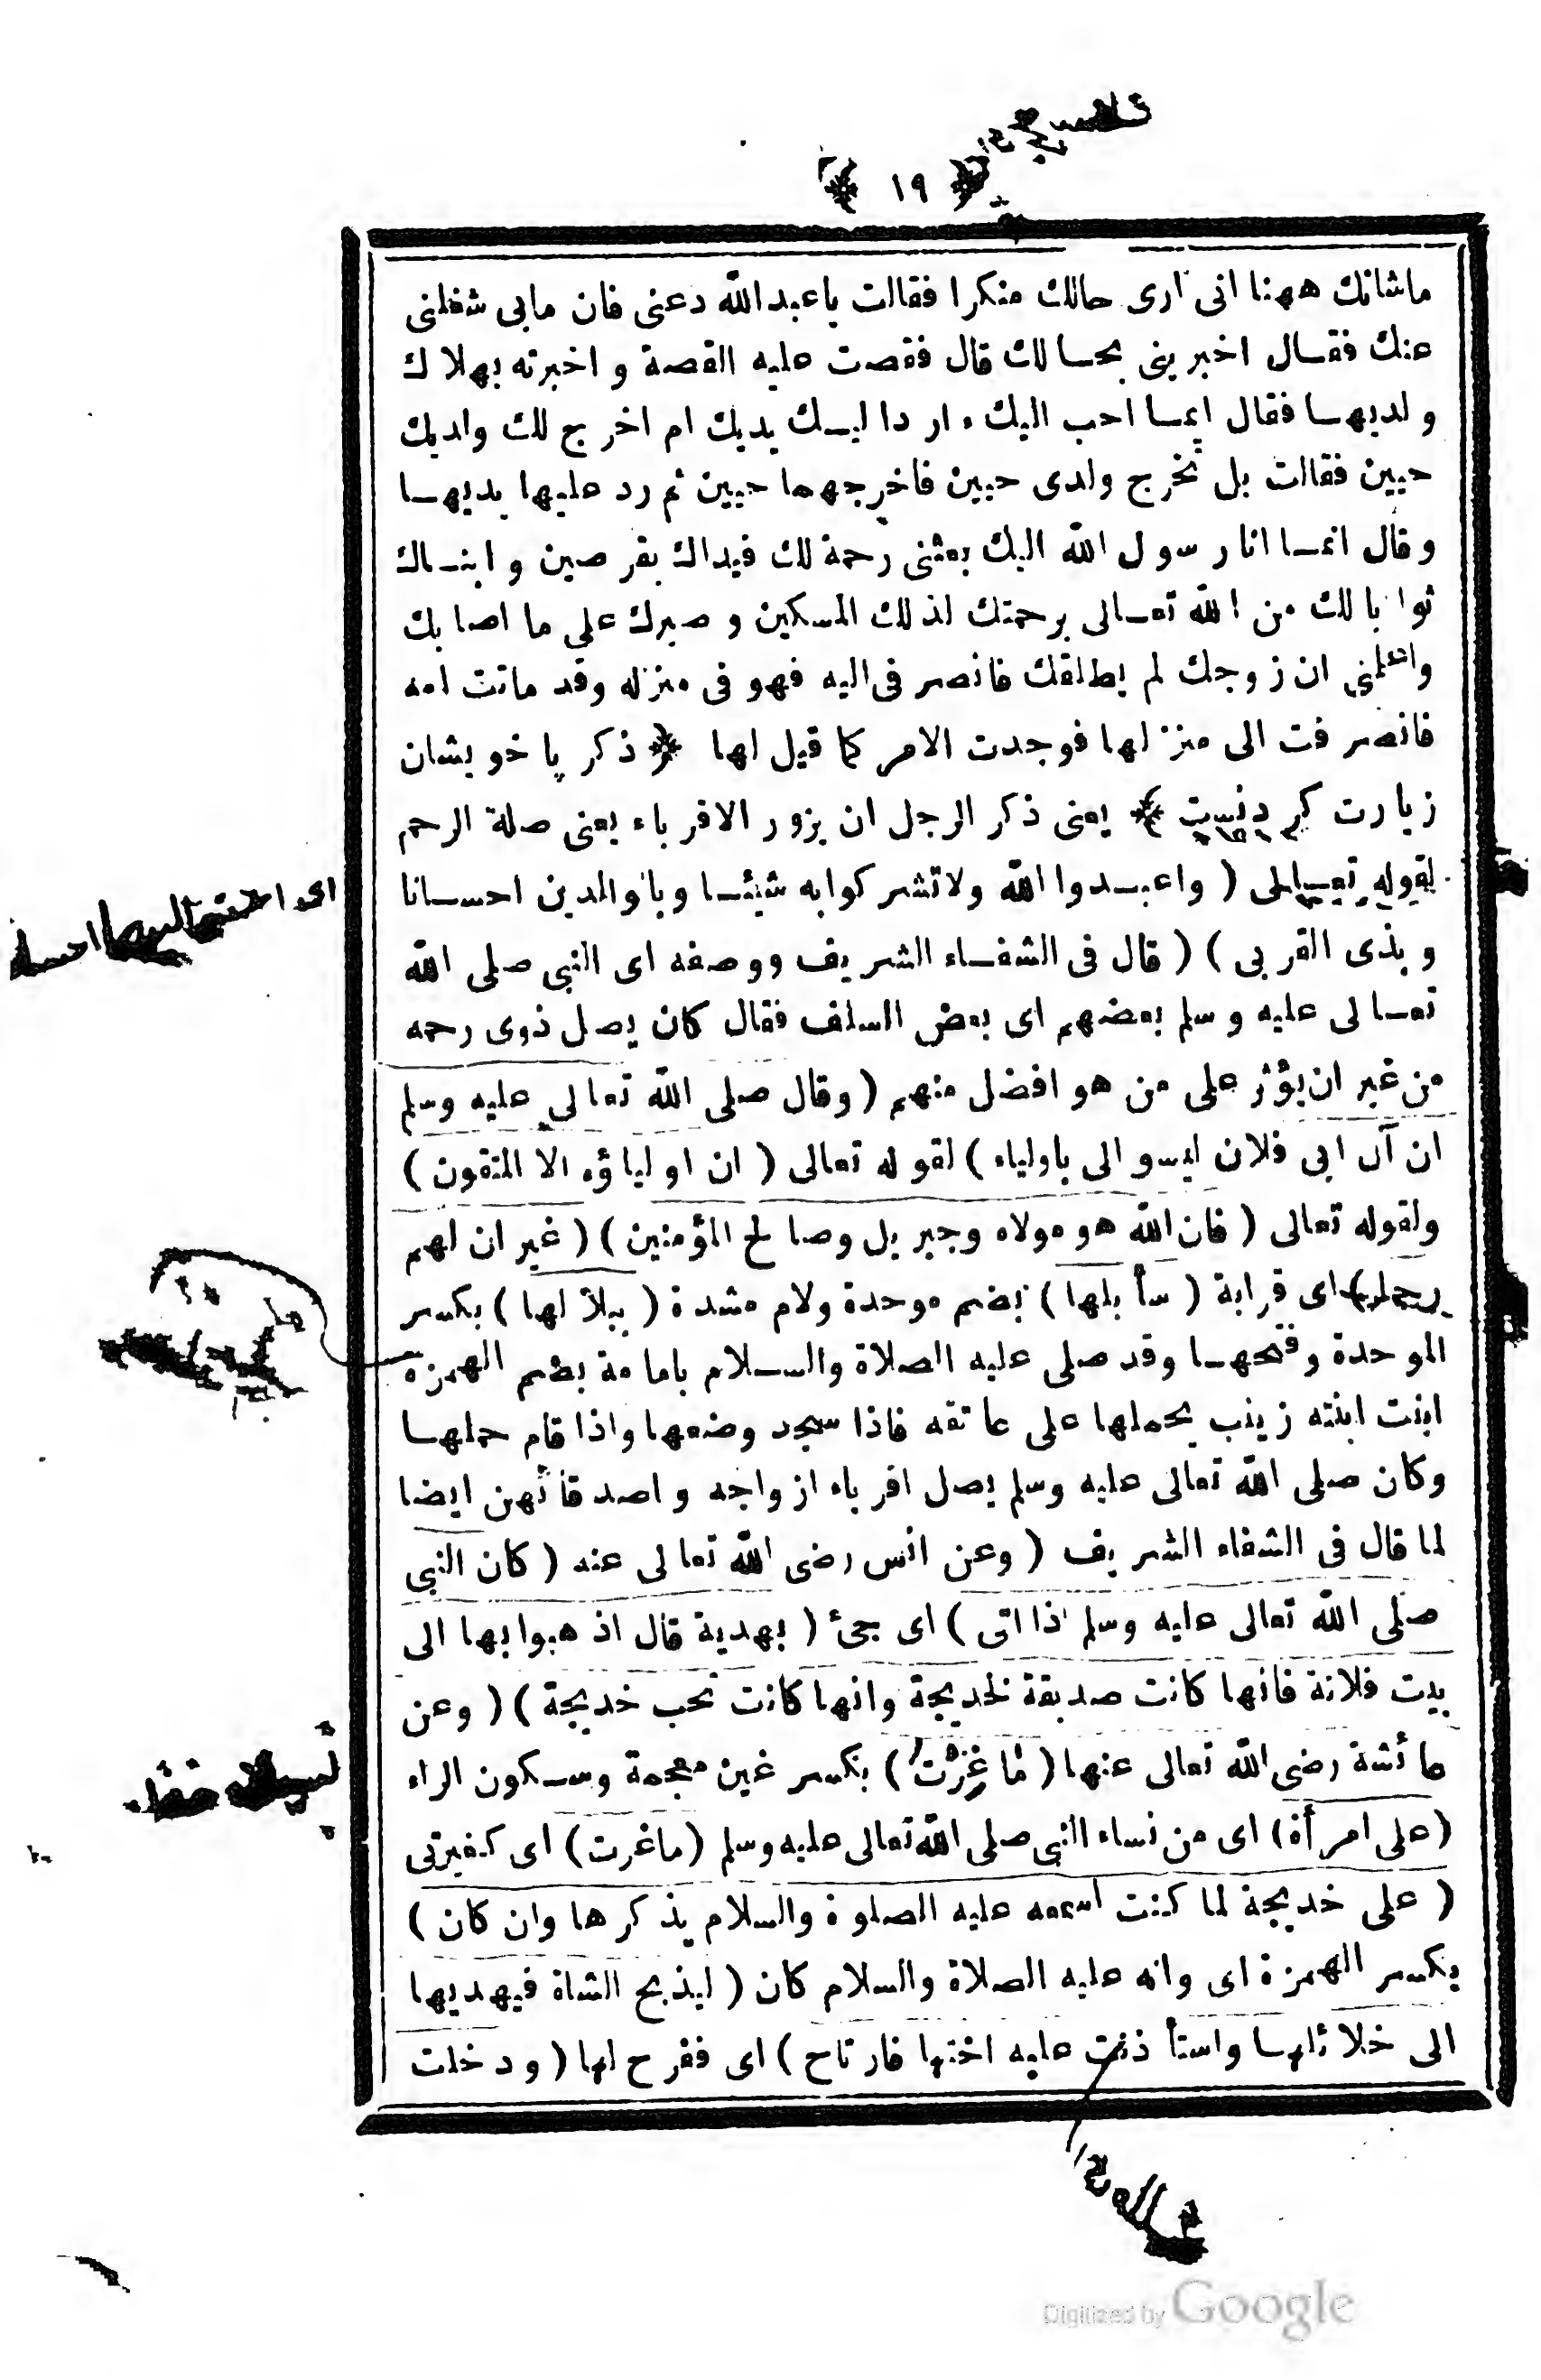 ﴿ ١٩ ﴾
ماشانك ههنا انى ارى حالك منكرا فقالت ياعبدالله دعنى فان مابى شغلنى
عنك فقـال اخبرينى بحـالك قال فقصت عليه القصة و اخبرته بهلاك
ولديهـا فقال ايمـا احب اليك ءاردا ليـك يديك ام اخرج لك ولديك
حيين فقالت بل تخرج ولدى حيين فاخرجهما حيين ثم رد عليها يديهـا
وقال انمـا انا رسول الله اليك بعثنى رحمة لك فيداك بقرصين و ابنـاك
ثوابا لك من الله تعـالى برحمتك لذلك المسكين و صبرك على ما اصابك
واعلمى ان زوجك لم يطلقك فانصرفى اليه فهو فى منزله وقد ماتت امه
فانصرفت الى منزلها فوجدت الامر كما قيل لها ﴿ ذكر يا خويشان
زيارت كردنست ﴾ يعنى ذكر الرجل ان يزور الاقرباء يعنى صلة الرحم
لقوله تعـالى ( واعبـدوا الله ولاتشركوا به شيئـا وبالوالدين احسـانا
وبذى القربى ) ( قال فى الشفـاء الشريف ووصفه اى النبى صلى الله
تعـالى عليه وسلم بعضهم اى بعض السلف فقال كان يصل ذوى رحمه
من غير ان يؤثر على من هو افضل منهم ( وقال صلى الله تعالى عليه وسلم
ان آل ابى فلان ليسوالى باولياء ) لقوله تعالى ( ان اولياؤه الا المتقون )
ولقوله تعالى ( فان الله هو مولاه وجبريل وصالح المؤمنين ) ( غير ان لهم
رحما ) اى قرابة ( سأبلها ) بضم موحدة ولام مشددة ( ببلالها ) بكسر
الموحدة وفتحهـا وقد صلى عليه الصلاة والسـلام بامامة بضم الهمزة
ابنت ابنته زينب يحملها على عاتقه فاذا سجد وضعها واذا قام حملهـا
وكان صلى الله تعالى عليه وسلم يصل اقرباء ازواجه واصدقائهن ايضا
لما قال فى الشفاء الشريف ( وعن انس رضى الله تعالى عنه ( كان النبى
صلى الله تعالى عليه وسلم اذا اتى ) اى جئ ( بهدية قال اذهبوا بها الى
بيت فلانة فانها كانت صديقة لخديجة وانها كانت تحب خديجة ) ( وعن
عائشة رضى الله تعالى عنها ( مَا غِرْتُ ) بكسر غين معجمة وسـكون الراء
( على امرأة ) اى من نساء النبى صلى الله تعالى عليه وسلم ( ماغرت ) اى كغيرتى
( على خديجة لما كنت اسمعه عليه الصلوة والسلام يذكرها وان كان )
بكسر الهمزة اى وانه عليه الصلاة والسلام كان ( ليذبح الشاة فيهديها
الى خلائلهـا واستأذنت عليه اختها فارتاح ) اى ففرح لها ( ودخلت
Digitized by Google